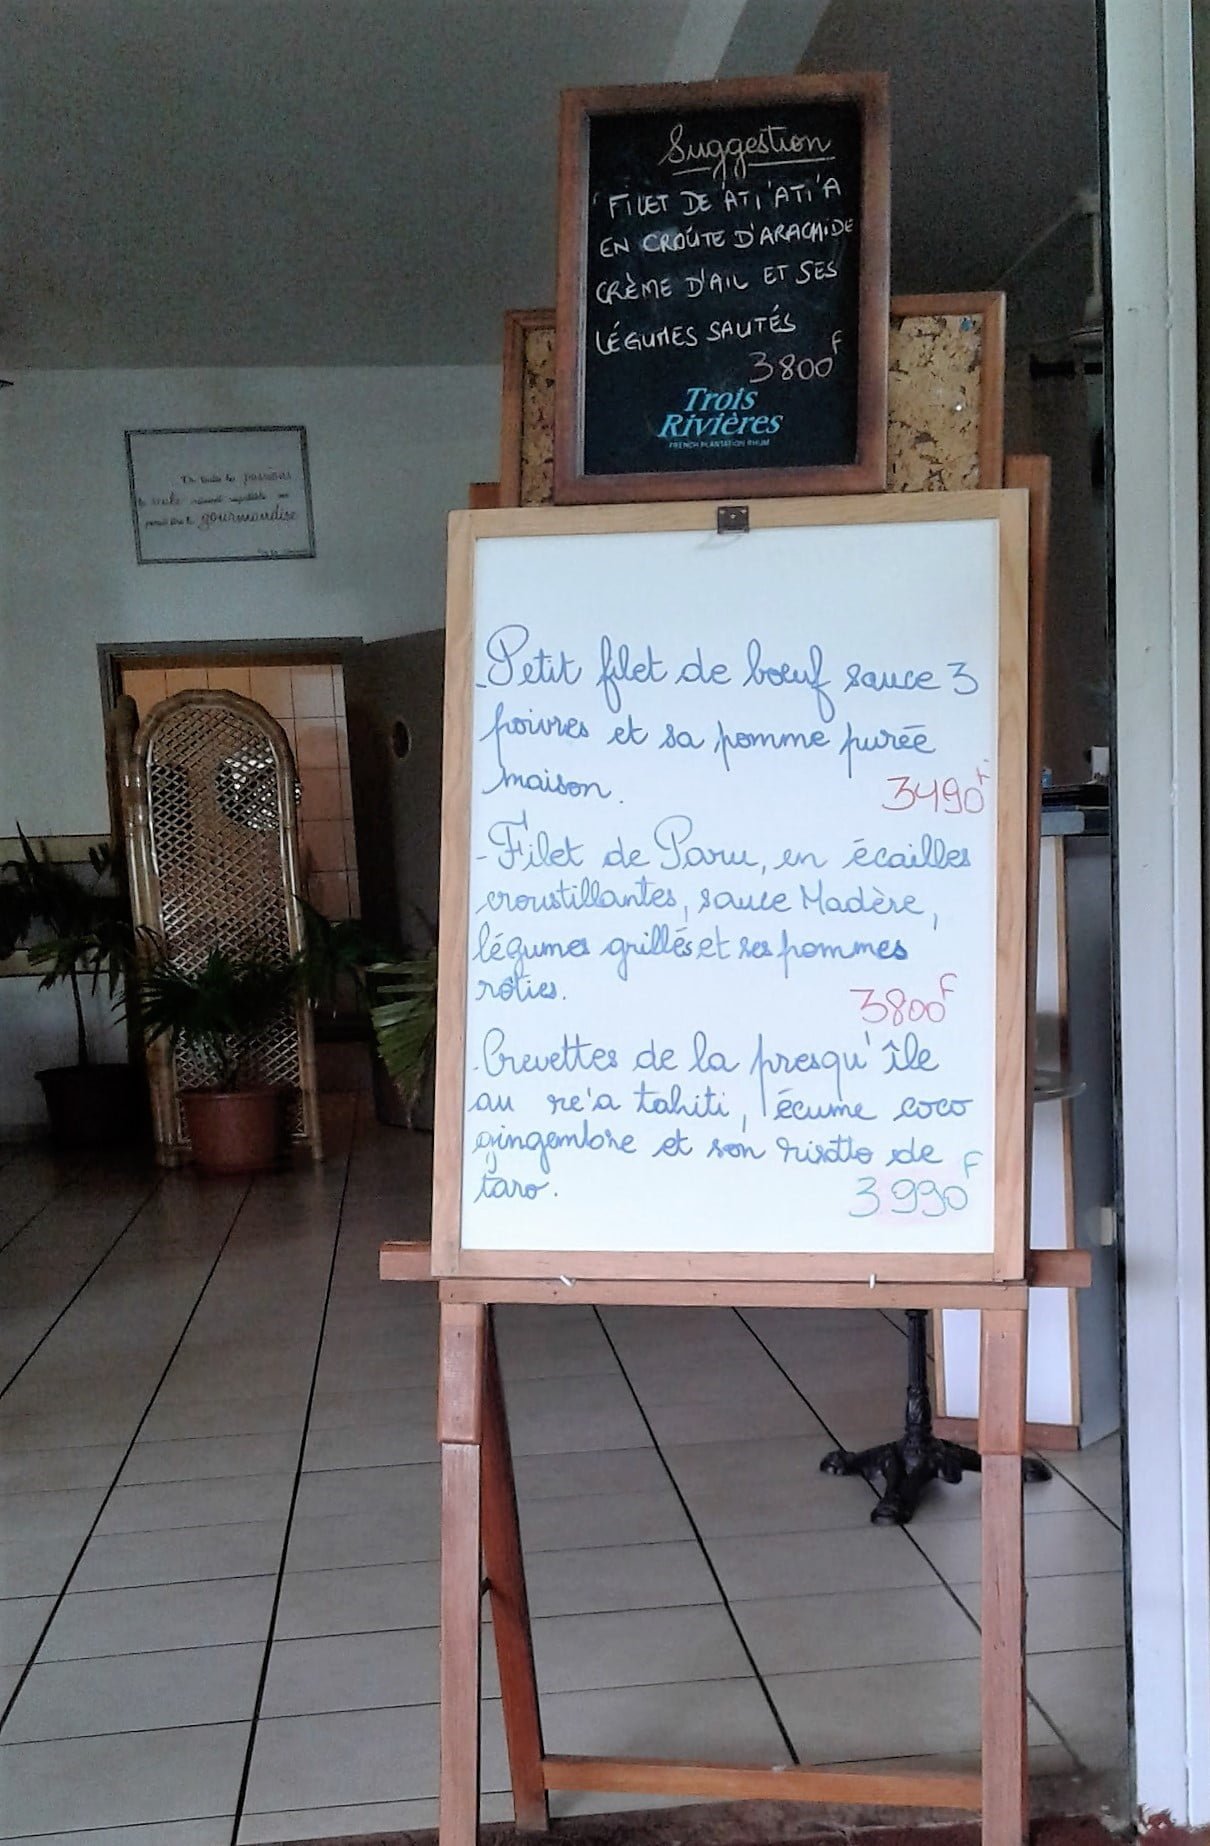 Suggestion
FILET DE 'ATI'ATI'A
EN CROÛTE D'ARACHIDE
CRÈME D'AIL ET SES
LÉGUMES SAUTÉS
3800F
Trois
Rivières
FRENCH PLANTATION RHUM
passions
gourmandise
- Petit filet de bœuf sauce 3
poivres et sa pomme purée
maison.
3490F
- Filet de Paru, en écailles
croustillantes, sauce Madère,
légumes grillés et ses pommes
rôties.
3800F
- Crevettes de la presqu'île
au re'a tahiti, écume coco
gingembre et son risotto de
taro.
3990F